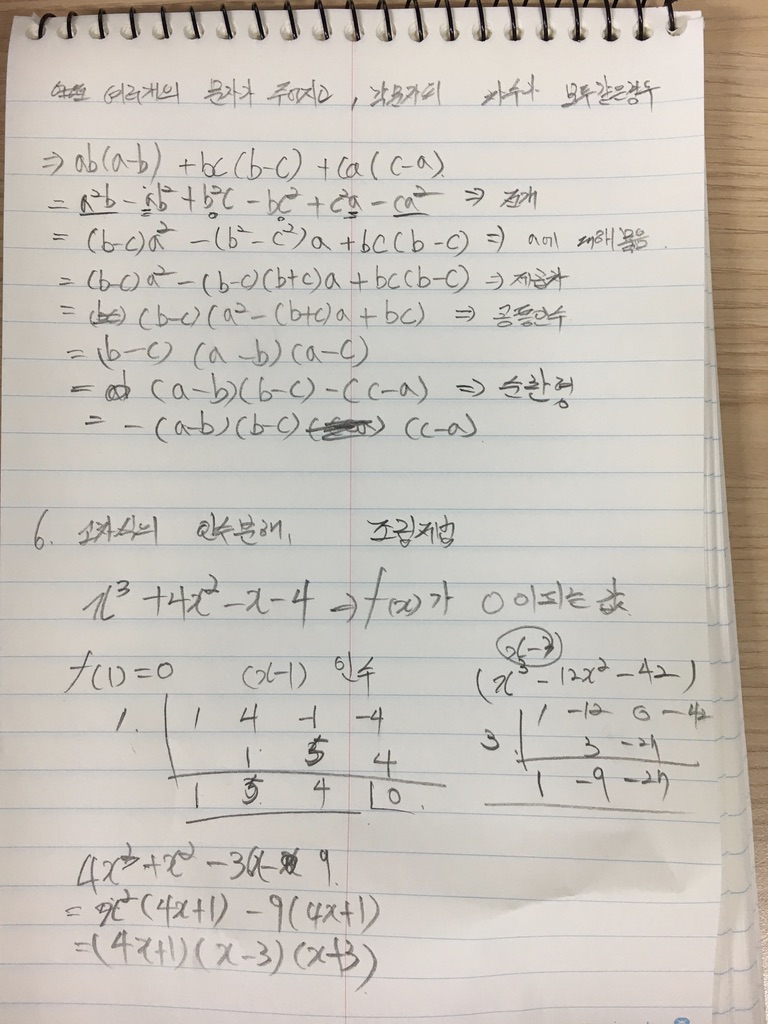 여러개의 문자가 주어지고, 각문자의 차수가 모두같은경우
⇒ ab(a-b) + bc(b-c) + ca(c-a)
= a²b - ab² + b²c - bc² + c²a - ca² ⇒ 전개
= (b-c)a² - (b²-c²)a + bc(b-c) ⇒ a에 대해 묶음
= (b-c)a² - (b-c)(b+c)a + bc(b-c) ⇒ 제곱차
= (b-c)(a² - (b+c)a + bc) ⇒ 공통인수
= (b-c)(a-b)(a-c)
= (a-b)(b-c) - (c-a) ⇒ 순환형
= -(a-b)(b-c) (c-a)
6. 고차식의 인수분해, 조립제법
x³ + 4x² - x - 4 ⇒ f(x)가 0이되는 값
f(1) = 0 (x-1) 인수
1. 1 4 -1 -4
1 5 4
1 5 4 0
(x-3)
(x³ - 12x² - 42)
1 -12 0 -42
3 3 -27
1 -9 -27
4x³ + x² - 36x - 9
= x²(4x+1) - 9(4x+1)
= (4x+1)(x-3)(x+3)